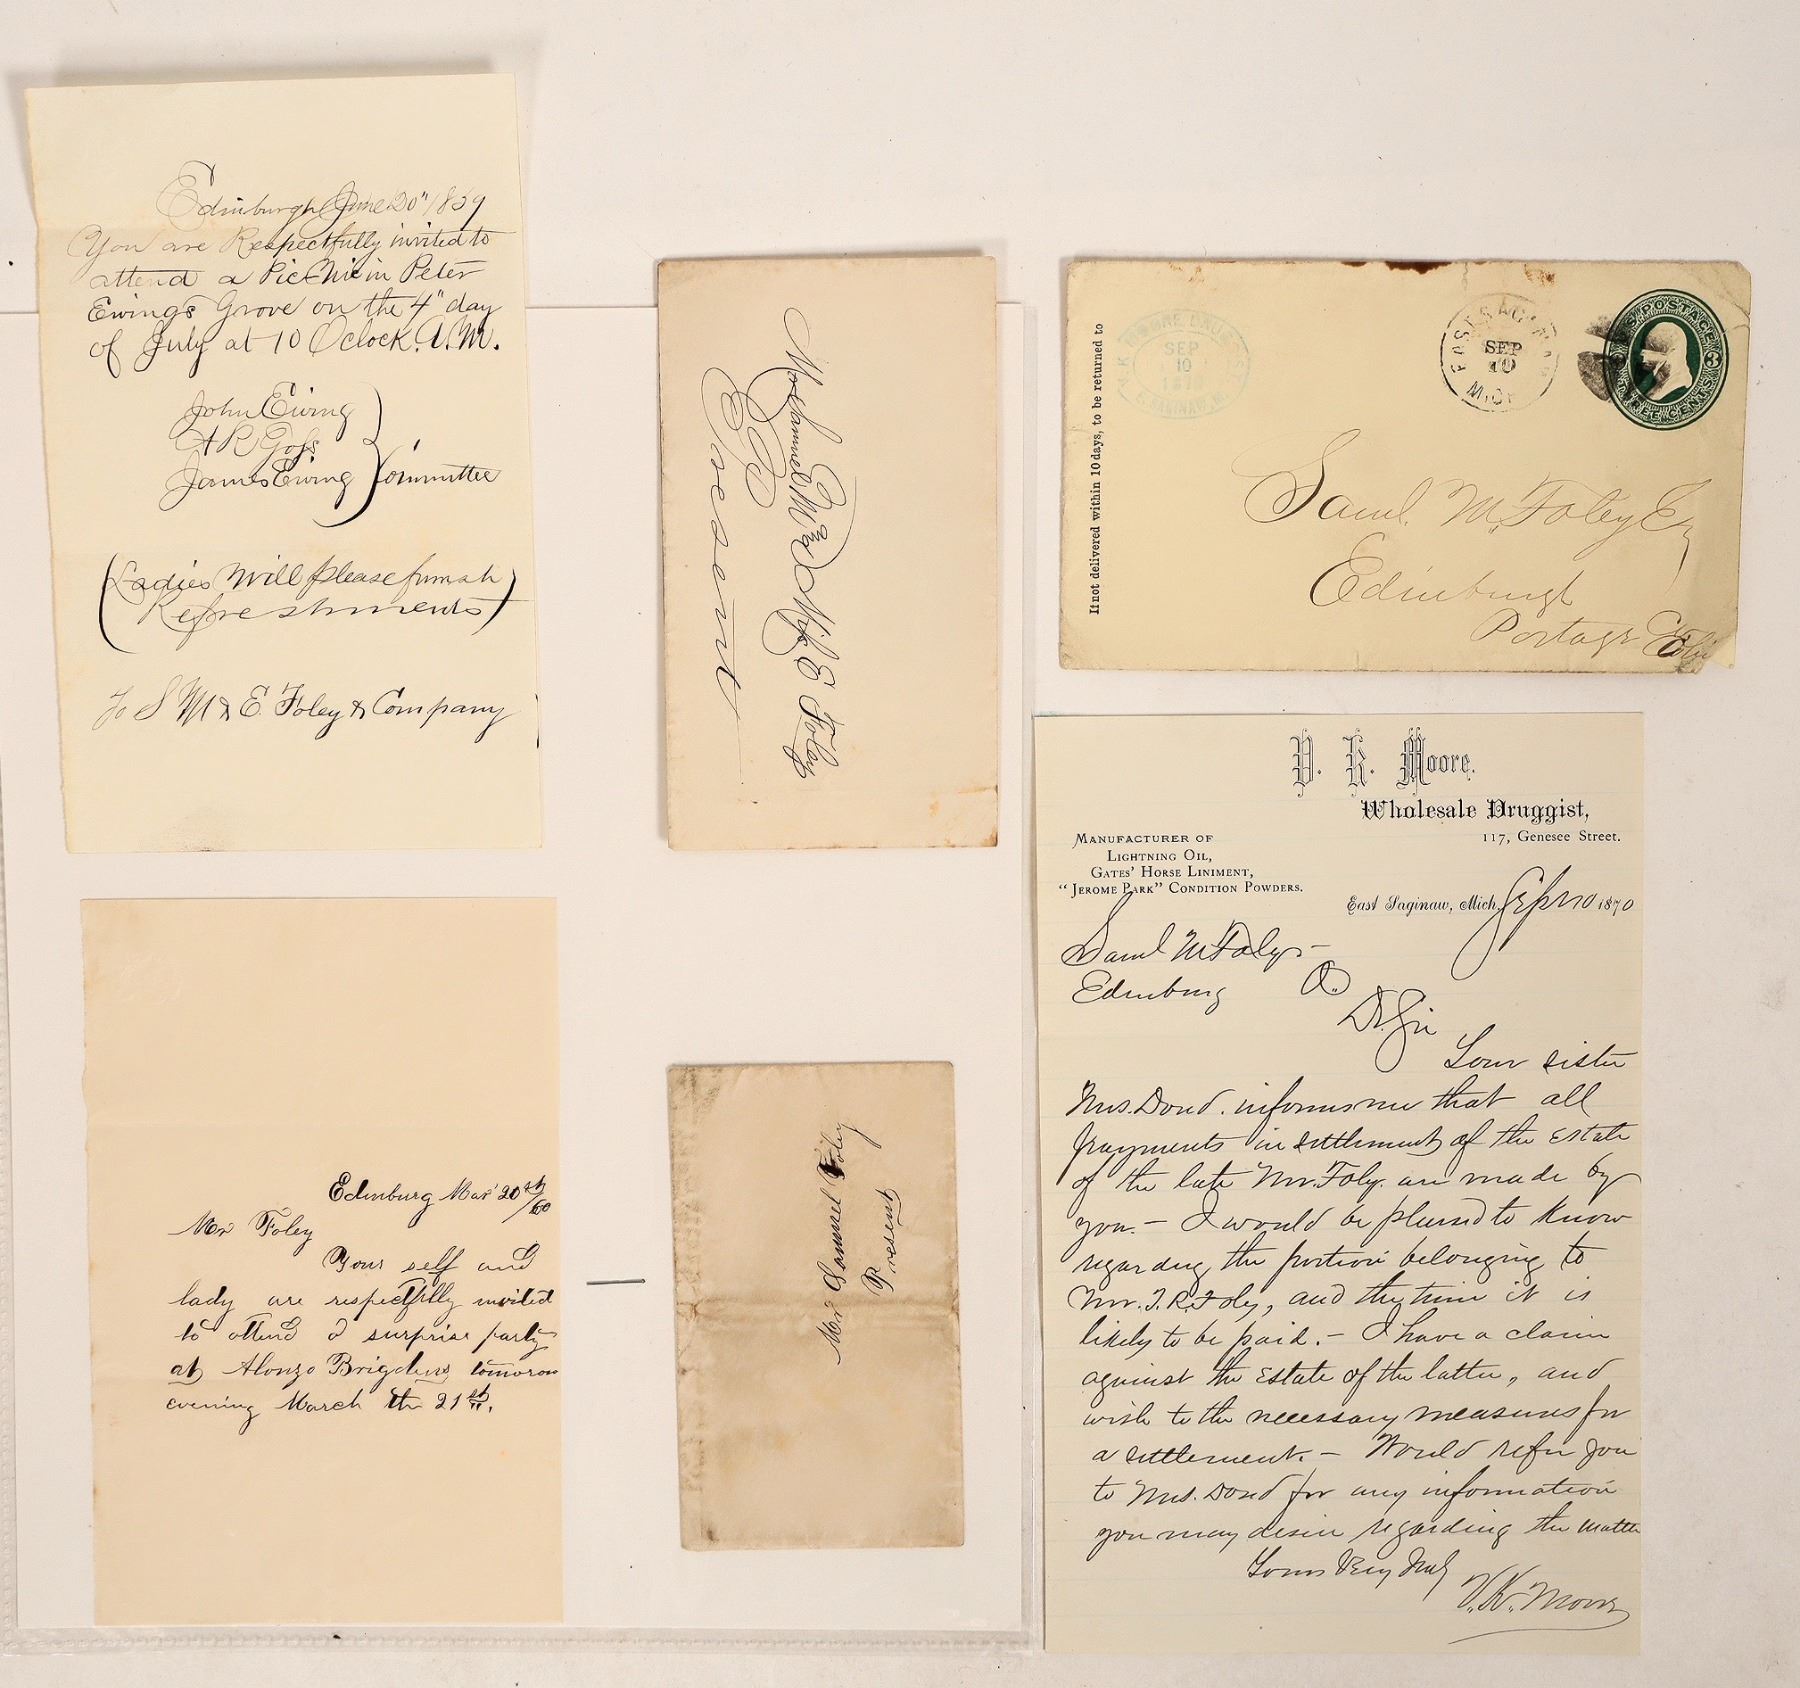 Edinburgh June 20" 1859
You are Respectfully invited to
attend a Pic Nic in Peter
Ewings Grove on the 4" day
of July at 10 Oclock. A.M.
John Ewing
A R Goss
James Ewing
Committee
(Ladies Will please furnish
Refreshments)
To S M & E. Foley & Company
Edinburg Mar 20th/60
Mr Foley
Your self and
lady are respectfully invited
to attend a surprise party
at Alonzo Brigdens tomorow
evening March the 21st.
E. Foley
Present
Mr Samuel Foley
Present
If not delivered within 10 days, to be returned to
MOORE
SEP
10
E. SAGINAW, M
EAST SAGINAW
SEP
10
MICH
U.S. POSTAGE
3 3
THREE CENTS
Saml. M. Foley Esq
Edinburgh
Portage Co
Ohio
V. K. Moore.
Wholesale Druggist,
117, Genesee Street.
MANUFACTURER OF
LIGHTNING OIL,
GATES' HORSE LINIMENT,
"JEROME PARK" CONDITION POWDERS.
East Saginaw, Mich, Sept 10 1870
Saml M Foley -
Edinburg O.
Dr. Sir
Your sister
Mrs. Dowd. informs me that all
payments in settlement of the estate
of the late Mr. Foley. are made by
you. - I would be pleased to know
regarding the portion belonging to
Mr. J. R. Foley, and the time it is
likely to be paid. - I have a claim
against the estate of the latter, and
wish to the necessary measures for
a settlement. - Would refer you
to Mrs. Dowd for any information
you may desire regarding the matter
Yours Very Truly
V. K. Moore